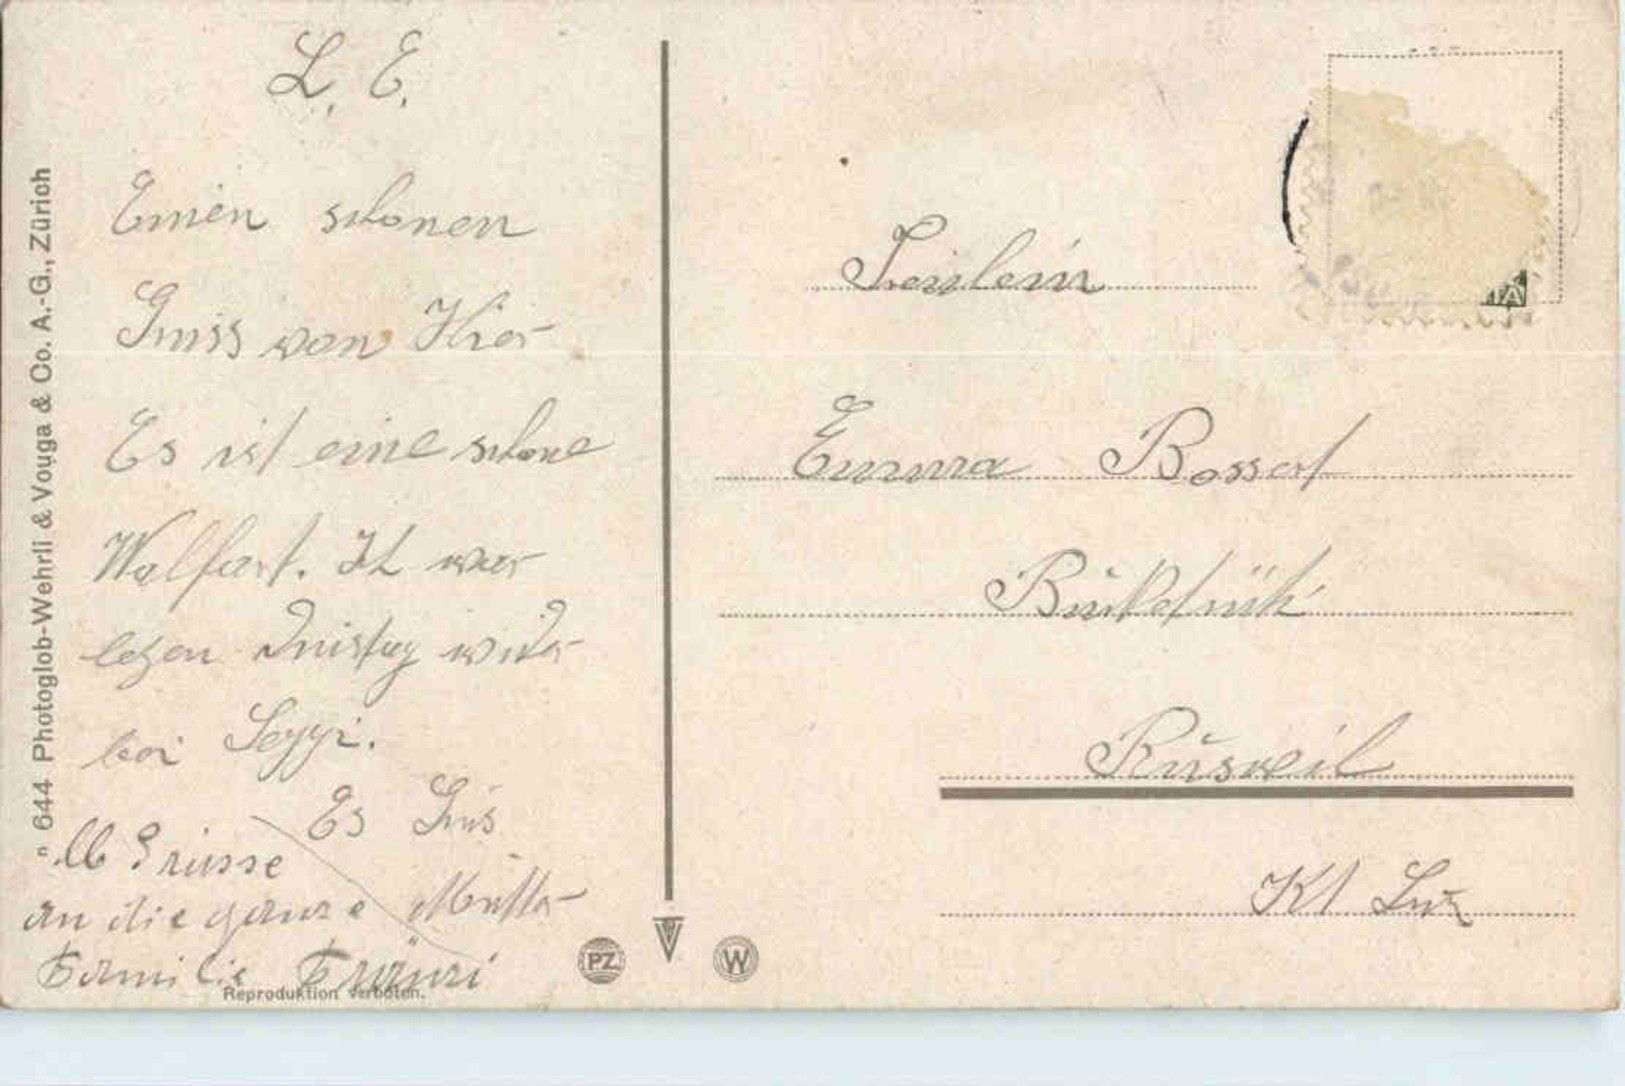 L. E.
Einen schönen
Gruss von Hier
Es ist eine schöne
Walfart. Ich war
letzen Dnistag wider
bei Seppi.
Es Grüs
Mutter
lb Grüsse
an die ganze
Familie Fränzi
Fräulein
Emma Bossert
Ruswil
Kt Luz
" 644 Photoglob-Wehrli & Vouga & Co. A.-G., Zürich
Reproduktion verboten.
PZ
W